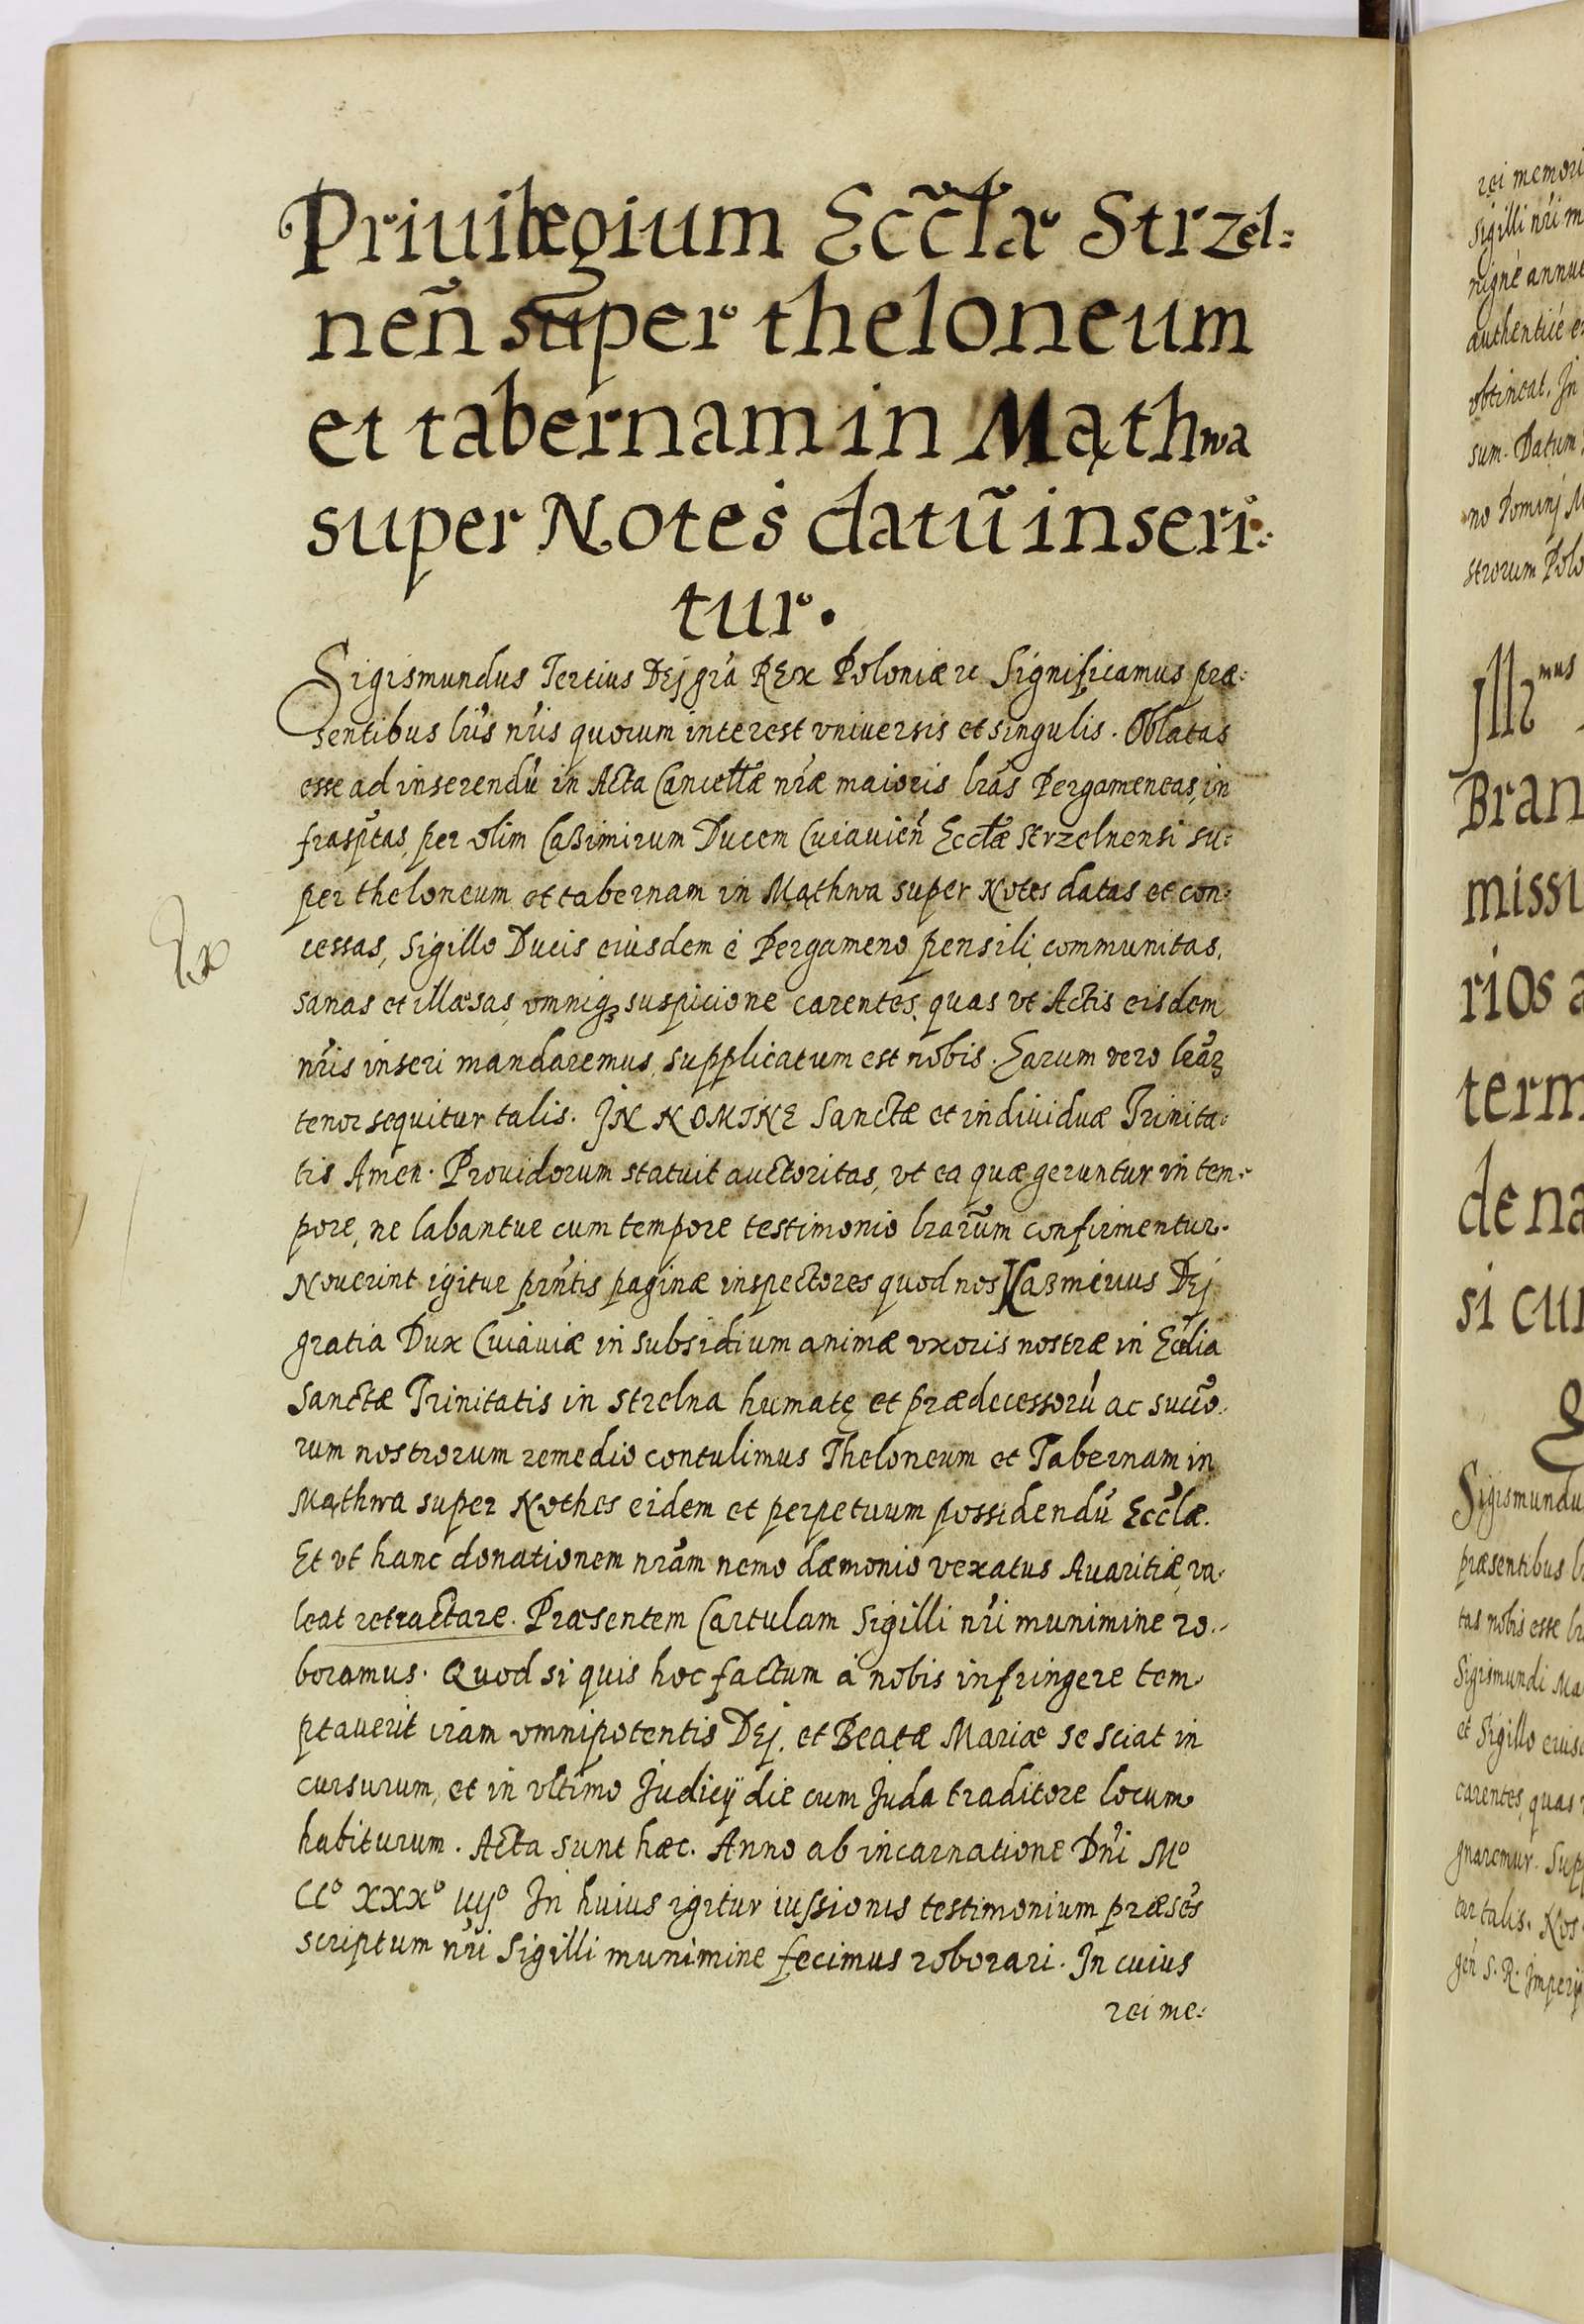 Priuilegium Eccłæ Strzel=
neñ super theloneum
et tabernam in Mąthwa
super Notes datũ inseri=
tur.
Sigismundus Tertius Dej grã REx Poloniæ rc Significamus præ=
sentibus lr̃is nr̃is quorum interest vniuersis et singulis. Oblatas
esse ad inserendũ in Acta Cancellæ nr̃æ maioris lr̃as Pergameneas, in
frasp̃tas, per olim Casimirum Ducem Cuiauieñ Eccłæ Strzelnensi su=
per theloneum et tabernam in Mąthwa super Notes datas et con=
cessas, Sigillo Ducis eiusdem è Pergameno pensili communitas,
sanas et illæsas, omniqꝫ suspicione carentes, quas vt Actis eisdem
nr̃is inseri mandaremus, supplicatum est nobis. Earum vero lr̃aꝝ
tenor sequitur talis. IN NOMINE Sanctæ et indiuiduæ Trinita=
tis Amen. Prouidorum statuit auctoritas, vt ea quæ geruntur in tem=
pore, ne labantur cum tempore testimonio lrarũm confirmentur.
Nouerint igitur prñtis paginæ inspectores quod nos Cazmirus Dej
gratia Dux Cuiauiæ in subsidium animæ vxoris nostræ in Ecclia
Sanctæ Trinitatis in Strelna humatę et prædecessorũ ac succõ=
rum nostrorum remedio contulimus Theloneum et Tabernam in
Mąthwa super Nothes eidem et perpetuum possidendũ Ecclæ.
Et vt hanc donationem nr̃am nemo dæmonio vexatus Auaritiæ, va=
leat retractare. Præsentem Cartulam Sigilli nr̃i munimine ro=
boramus. Quod si quis hoc factum à nobis infringere tem=
ptauerit iram omnipotentis Dej. et Beatæ Mariæ se sciat in
cursurum, et in vltimo Iudicÿ die cum Juda traditore locum
habiturum. Acta sunt hæc. Anno ab incarnatione Dñi Mº
CCº XXXº iiijº In huius igitur iussionis testimonium præsẽs
scriptum nr̃i Sigilli munimine fecimus roborari. In cuius
rei me=
Ex
rei memori
Sigilli nr̃i m
nignè annue
authenticè e
obtineat. In
sum. Datum
no Dominj M
strorum Polo
Illmus
Bran
missi
rios a
term
de na
si cu
Sigismundu
præsentibus l
tas nobis esse lr
Sigismundi Ma
et Sigillo eius
carentes, quas
gnaremur. Supp
tur talis. Nos
geñ S. R. Imperij